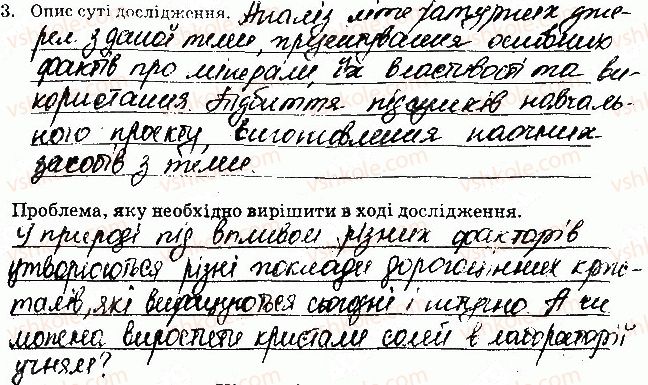 3. Опис суті дослідження. Аналіз літературних дже-
рел з даної теми, презентування основних
фактів про мінерали, їх властивості та ви-
користання. Підбиття підсумків навчаль-
ного проєкту, виготовлення наочних
засобів з теми.
Проблема, яку необхідно вирішити в ході дослідження.
У природі під впливом різних факторів
утворюються різні поклади дорогоцінних крис-
талів, які вирощуються сьогодні і штучно. А чи
можна виростити кристали солей в лабораторії
учням?